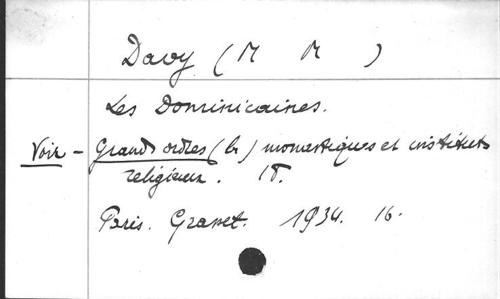 Davy (M M )
Les Dominicaines.
Voir - Grands ordres (les) monastiques et instituts
religieux. 18.
Paris. Grasset. 1934. 16.